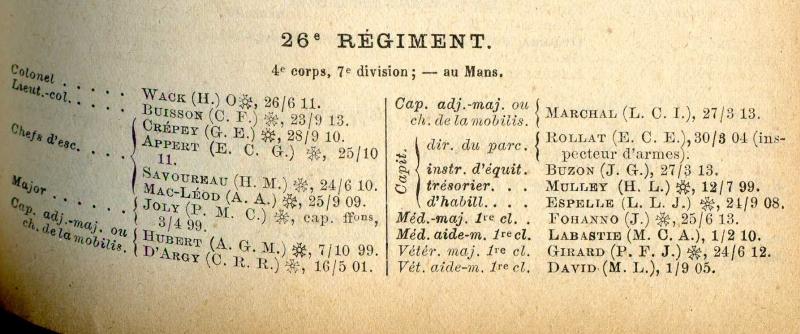 26e RÉGIMENT.
4e corps, 7e division; — au Mans.
Colonel . . . . . WACK (H.) O❋, 26/6 11.
Lieut.-col. . . . . BUISSON (C. F.) ❋, 23/9 13.
Chefs d'esc. . . . CRÉPEY (G. E.) ❋, 28/9 10.
APPERT (E. C. G.) ❋, 25/10
11.
SAVOUREAU (H. M.) ❋, 24/6 10.
Major . . . . . . MAC-LÉOD (A. A.) ❋, 25/9 09.
Cap. adj.-maj. ou JOLY (P. M. C.) ❋, cap. ffons,
3/4 99.
ch. de la mobilis. HUBERT (A. G. M.) ❋, 7/10 99.
D'ARGY (C. R. R.) ❋, 16/5 01.
Cap. adj.-maj. ou
ch. de la mobilis. MARCHAL (L. C. I.), 27/3 13.
Capit. dir. du parc. ROLLAT (E. C. E.), 30/3 04 (ins-
pecteur d'armes).
instr. d'équit. BUZON (J. G.), 27/3 13.
trésorier. . . MULLEY (H. L.) ❋, 12/7 99.
d'habill. . . . ESPELLE (L. L. J.) ❋, 24/9 08.
Méd.-maj. 1re cl. . FOHANNO (J.) ❋, 25/6 13.
Méd. aide-m. 1re cl. LABASTIE (M. C. A.), 1/2 10.
Vétér. maj. 1re cl. GIRARD (P. F. J.) ❋, 24/6 12.
Vét. aide-m. 1re cl. DAVID (M. L.), 1/9 05.